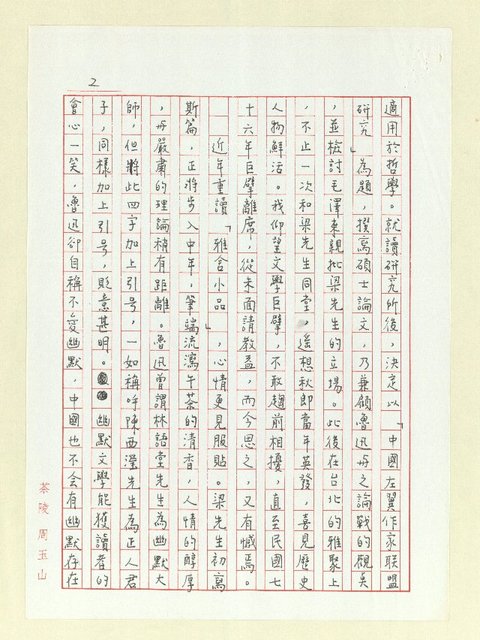 2
適用於哲學。就讀研究所後，決定以「中國左翼作家聯盟
研究」為題，撰寫碩士論文，乃兼顧魯迅與之論戰的觀點
，並檢討毛澤東親批梁先生的立場。此後在台北的雅聚上
，不止一次和梁先生同堂，遙想秋郎當年英發，喜見歷史
人物鮮活。我仰望文學巨擘，不敢趨前相擾，直至民國七
十六年巨擘離席！從未面請教益，而今思之，又有憾焉。
近年重讀「雅舍小品」，心情更見服貼。梁先生初寫
斯篇，正將步入中年，筆端流瀉午茶的清香，人情的醇厚
，與嚴肅的理論稍有距離。魯迅曾謂林語堂先生為幽默大
師，但將此四字加上引號，一如稱呼陳西瀅先生為正人君
子，同樣加上引號，貶意甚明。幽默文學能獲讀者的
會心一笑，魯迅卻自稱不愛幽默，中國也不會有幽默存在
茶陵 周玉山